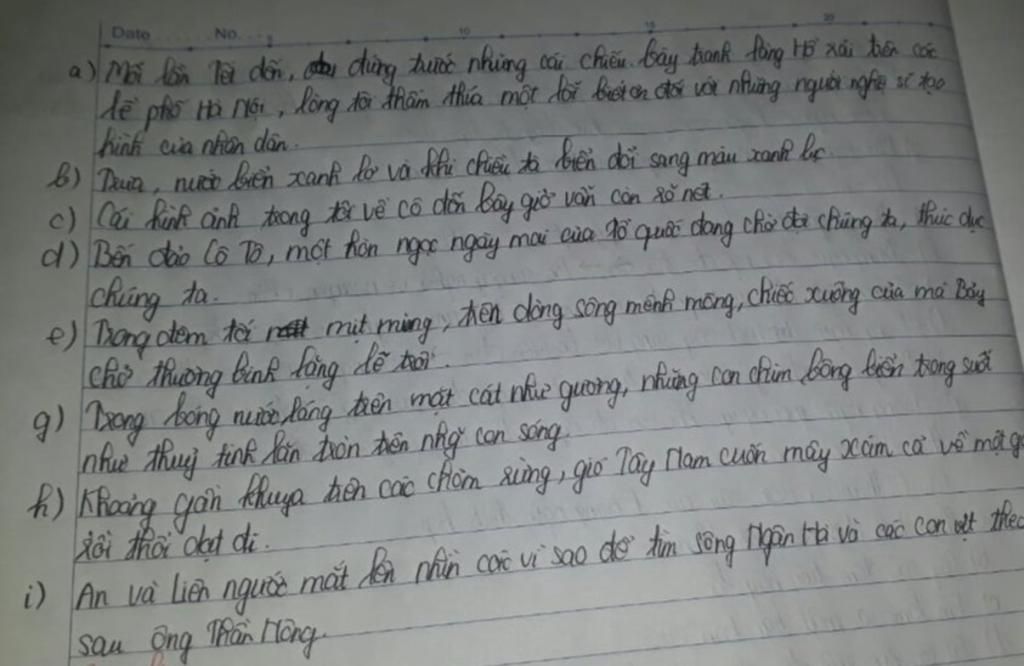 Date ....... No. ...
5 10 15 20
a) Mỗi lần Tết đến, đứng trước những cái chiếu bày tranh làng Hồ xải trên các
lề phố Hà Nội, lòng tôi thấm thía một nỗi biết ơn đối với những người nghệ sĩ tạo
hình của nhân dân.
b) Trưa, nước biển xanh lơ và khi chiều tà biển đổi sang màu xanh lục.
c) Cái hình ảnh trong tôi về cô đến bây giờ vẫn còn rõ nét.
d) Bến đảo Cô Tô, một hòn ngọc ngày mai của tổ quốc đang chờ đợi chúng ta, thúc dục
chúng ta.
e) Trong đêm tối mịt mùng, trên dòng sông mênh mông, chiếc xuồng của má Bảy
chở thương binh lặng lẽ trôi.
g) Trong bóng nước láng trên mặt cát như gương, những con chim bông biển trong suốt
như thuỷ tinh lăn tròn trên những con sóng.
h) Khoảng gần khuya trên các chòm rừng, gió Tây Nam cuốn mây xám cả về một g
rồi thổi dạt đi.
i) An và Liên ngước mắt lên nhìn các vì sao để tìm sông Ngân Hà và các con vịt theo
sau ông Thần Nông.